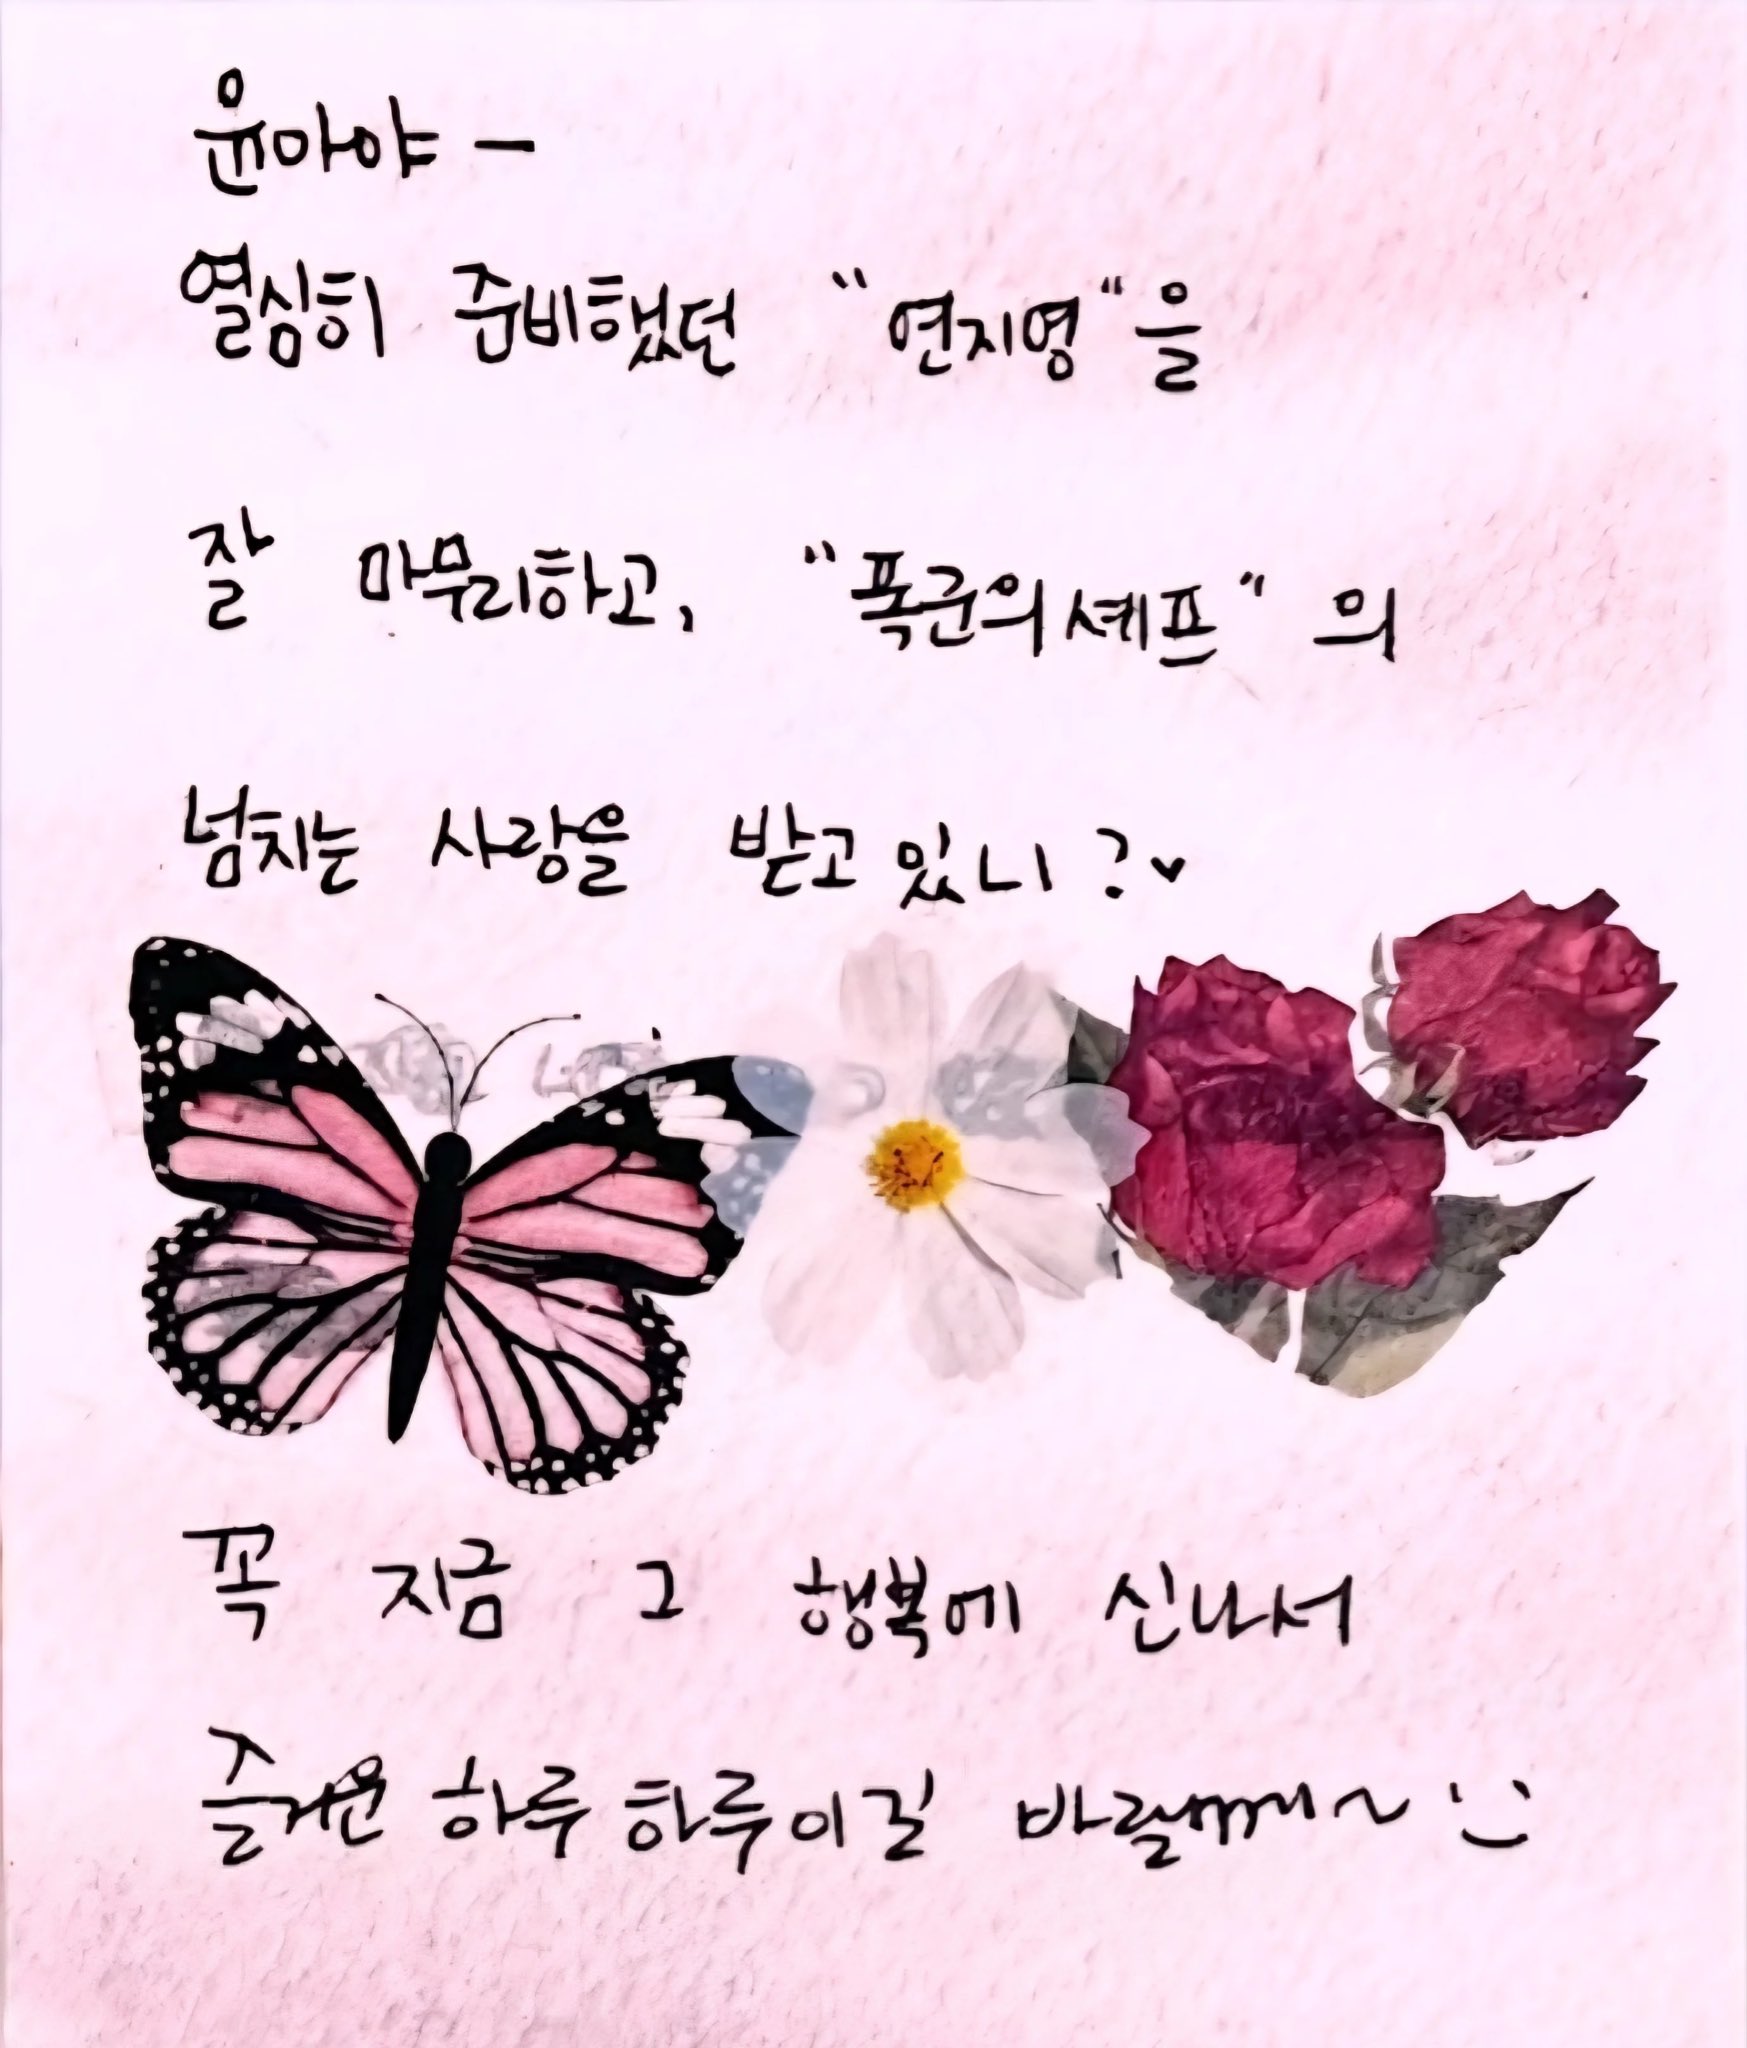 윤아야 -
열심히 준비했던 "연지영"을
잘 마무리하고, "폭군의셰프"의
넘치는 사랑을 받고있니?♥
꼭 지금 그 행복에 신나서
즐거운 하루하루이길 바랄께~ :)